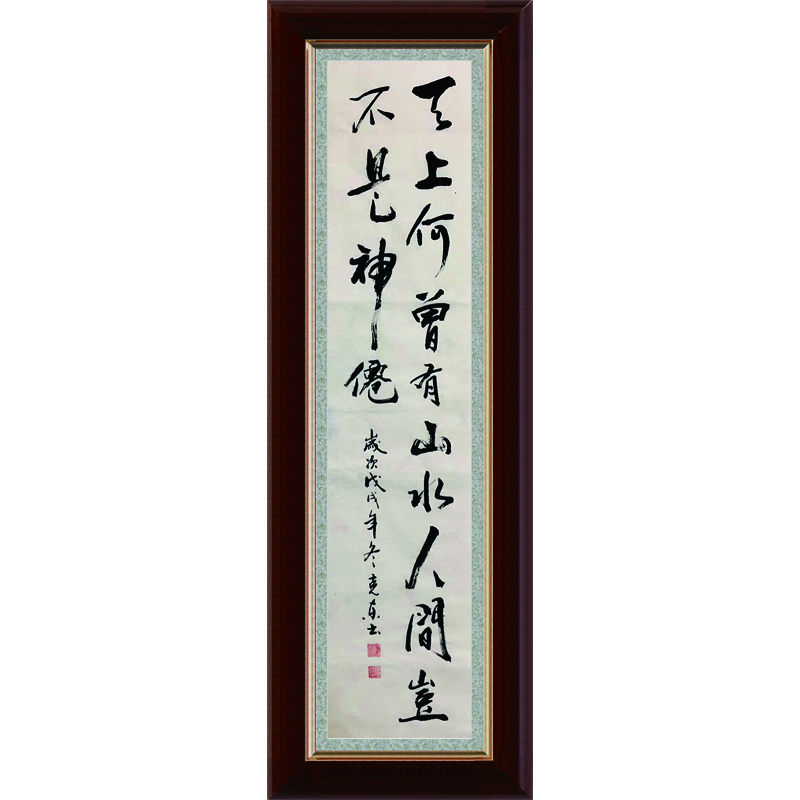 天上何曾有山水人間豈
不是神僊
歲次戊戌年冬克東书